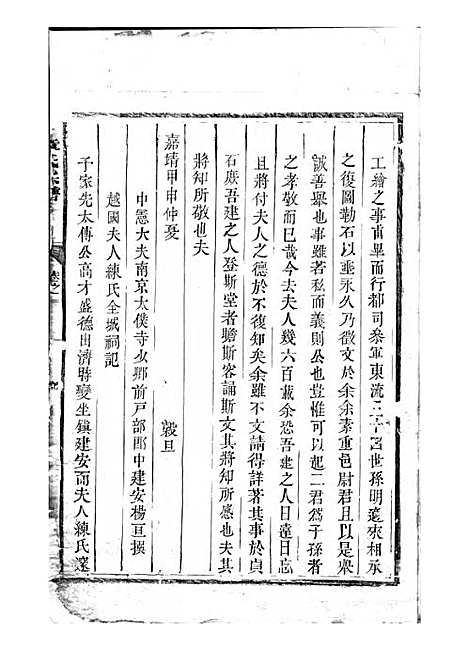 工繪之事甫畢而行都司叅軍東流二十
世孫明
夾相承
之復圖勒石以垂永久乃徵文於余余素重邑尉君且以是舉
誠善舉也事雖若私而義則公也豈惟可以起二君為子孫者
之孝敬而已哉今去夫人幾六百載余恐吾建之人日遠日忘
且將付夫人之德於不復知矣余雖不文請得詳著其事於貞
石庶吾建之人登斯堂者瞻斯容誦斯文其將知所感也夫其
將知所敬也夫
嘉靖甲申仲夏
穀旦
中憲大夫南京太僕寺少卿前戸部郎中建安楊亘撰
越國夫人練氏全城祠記
予家先太傅公高才盛德出濟時變坐鎮建安而夫人練氏寔
卷之